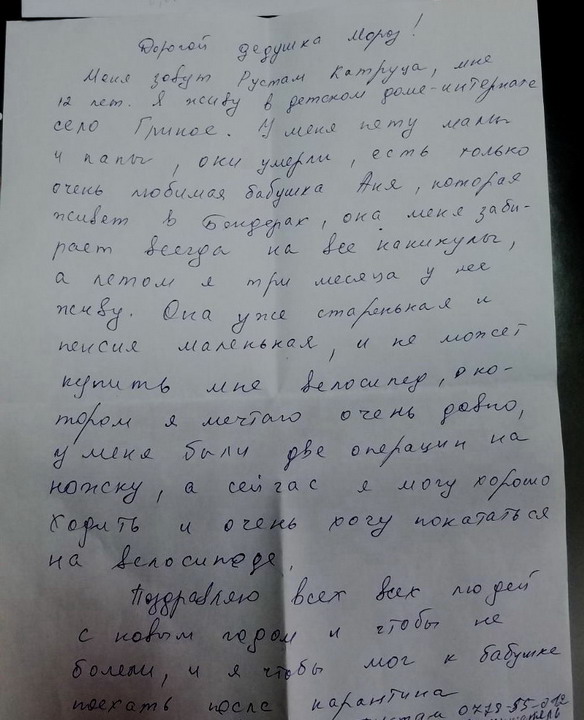 Дорогой дедушка Мороз!
Меня зовут Рустам Катруца, мне
12 лет. Я живу в детском доме-интернате
село Гриное. У меня нету мамы
и папы, они умерли, есть только
очень любимая бабушка Аня, которая
живет в Бендерах, она меня заби-
рает всегда на все каникулы,
а летом я три месяца у нее
живу. Она уже старенькая и
пенсия маленькая, и не может
купить мне велосипед, о ко-
тором я мечтаю очень давно,
у меня были две операции на
ножку, а сейчас я могу хорошо
ходить и очень хочу покататься
на велосипеде.
Поздравляю всех всех людей
с новым годом и чтобы не
болели, и я чтобы мог к бабушке
поехать после карантина